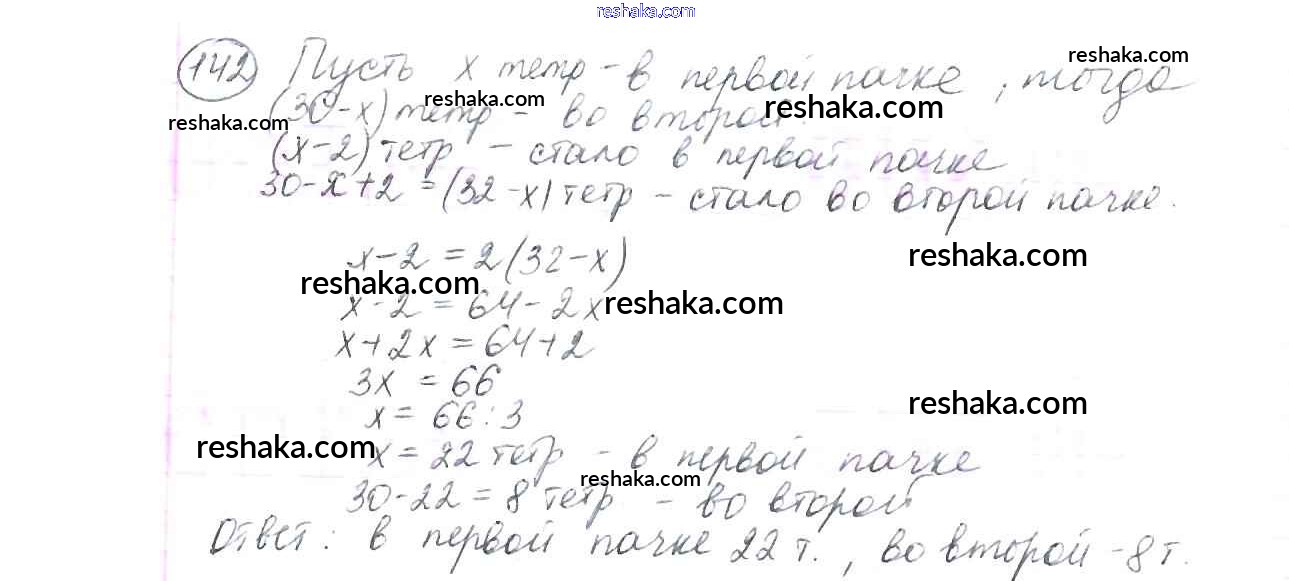 reshaka.com
142 Пусть x тетр - в первой пачке, тогда
reshaka.com
(30-x) тетр - во второй.
reshaka.com
reshaka.com
reshaka.com
(x-2) тетр - стало в первой пачке
30-x+2 = (32-x) тетр - стало во второй пачке.
x-2 = 2(32-x)
reshaka.com
reshaka.com
x-2 = 64-2x
reshaka.com
x+2x = 64+2
3x = 66
x = 66:3
reshaka.com
reshaka.com
x = 22 тетр - в первой пачке
reshaka.com
30-22 = 8 тетр - во второй
Ответ: в первой пачке 22 т., во второй - 8 т.